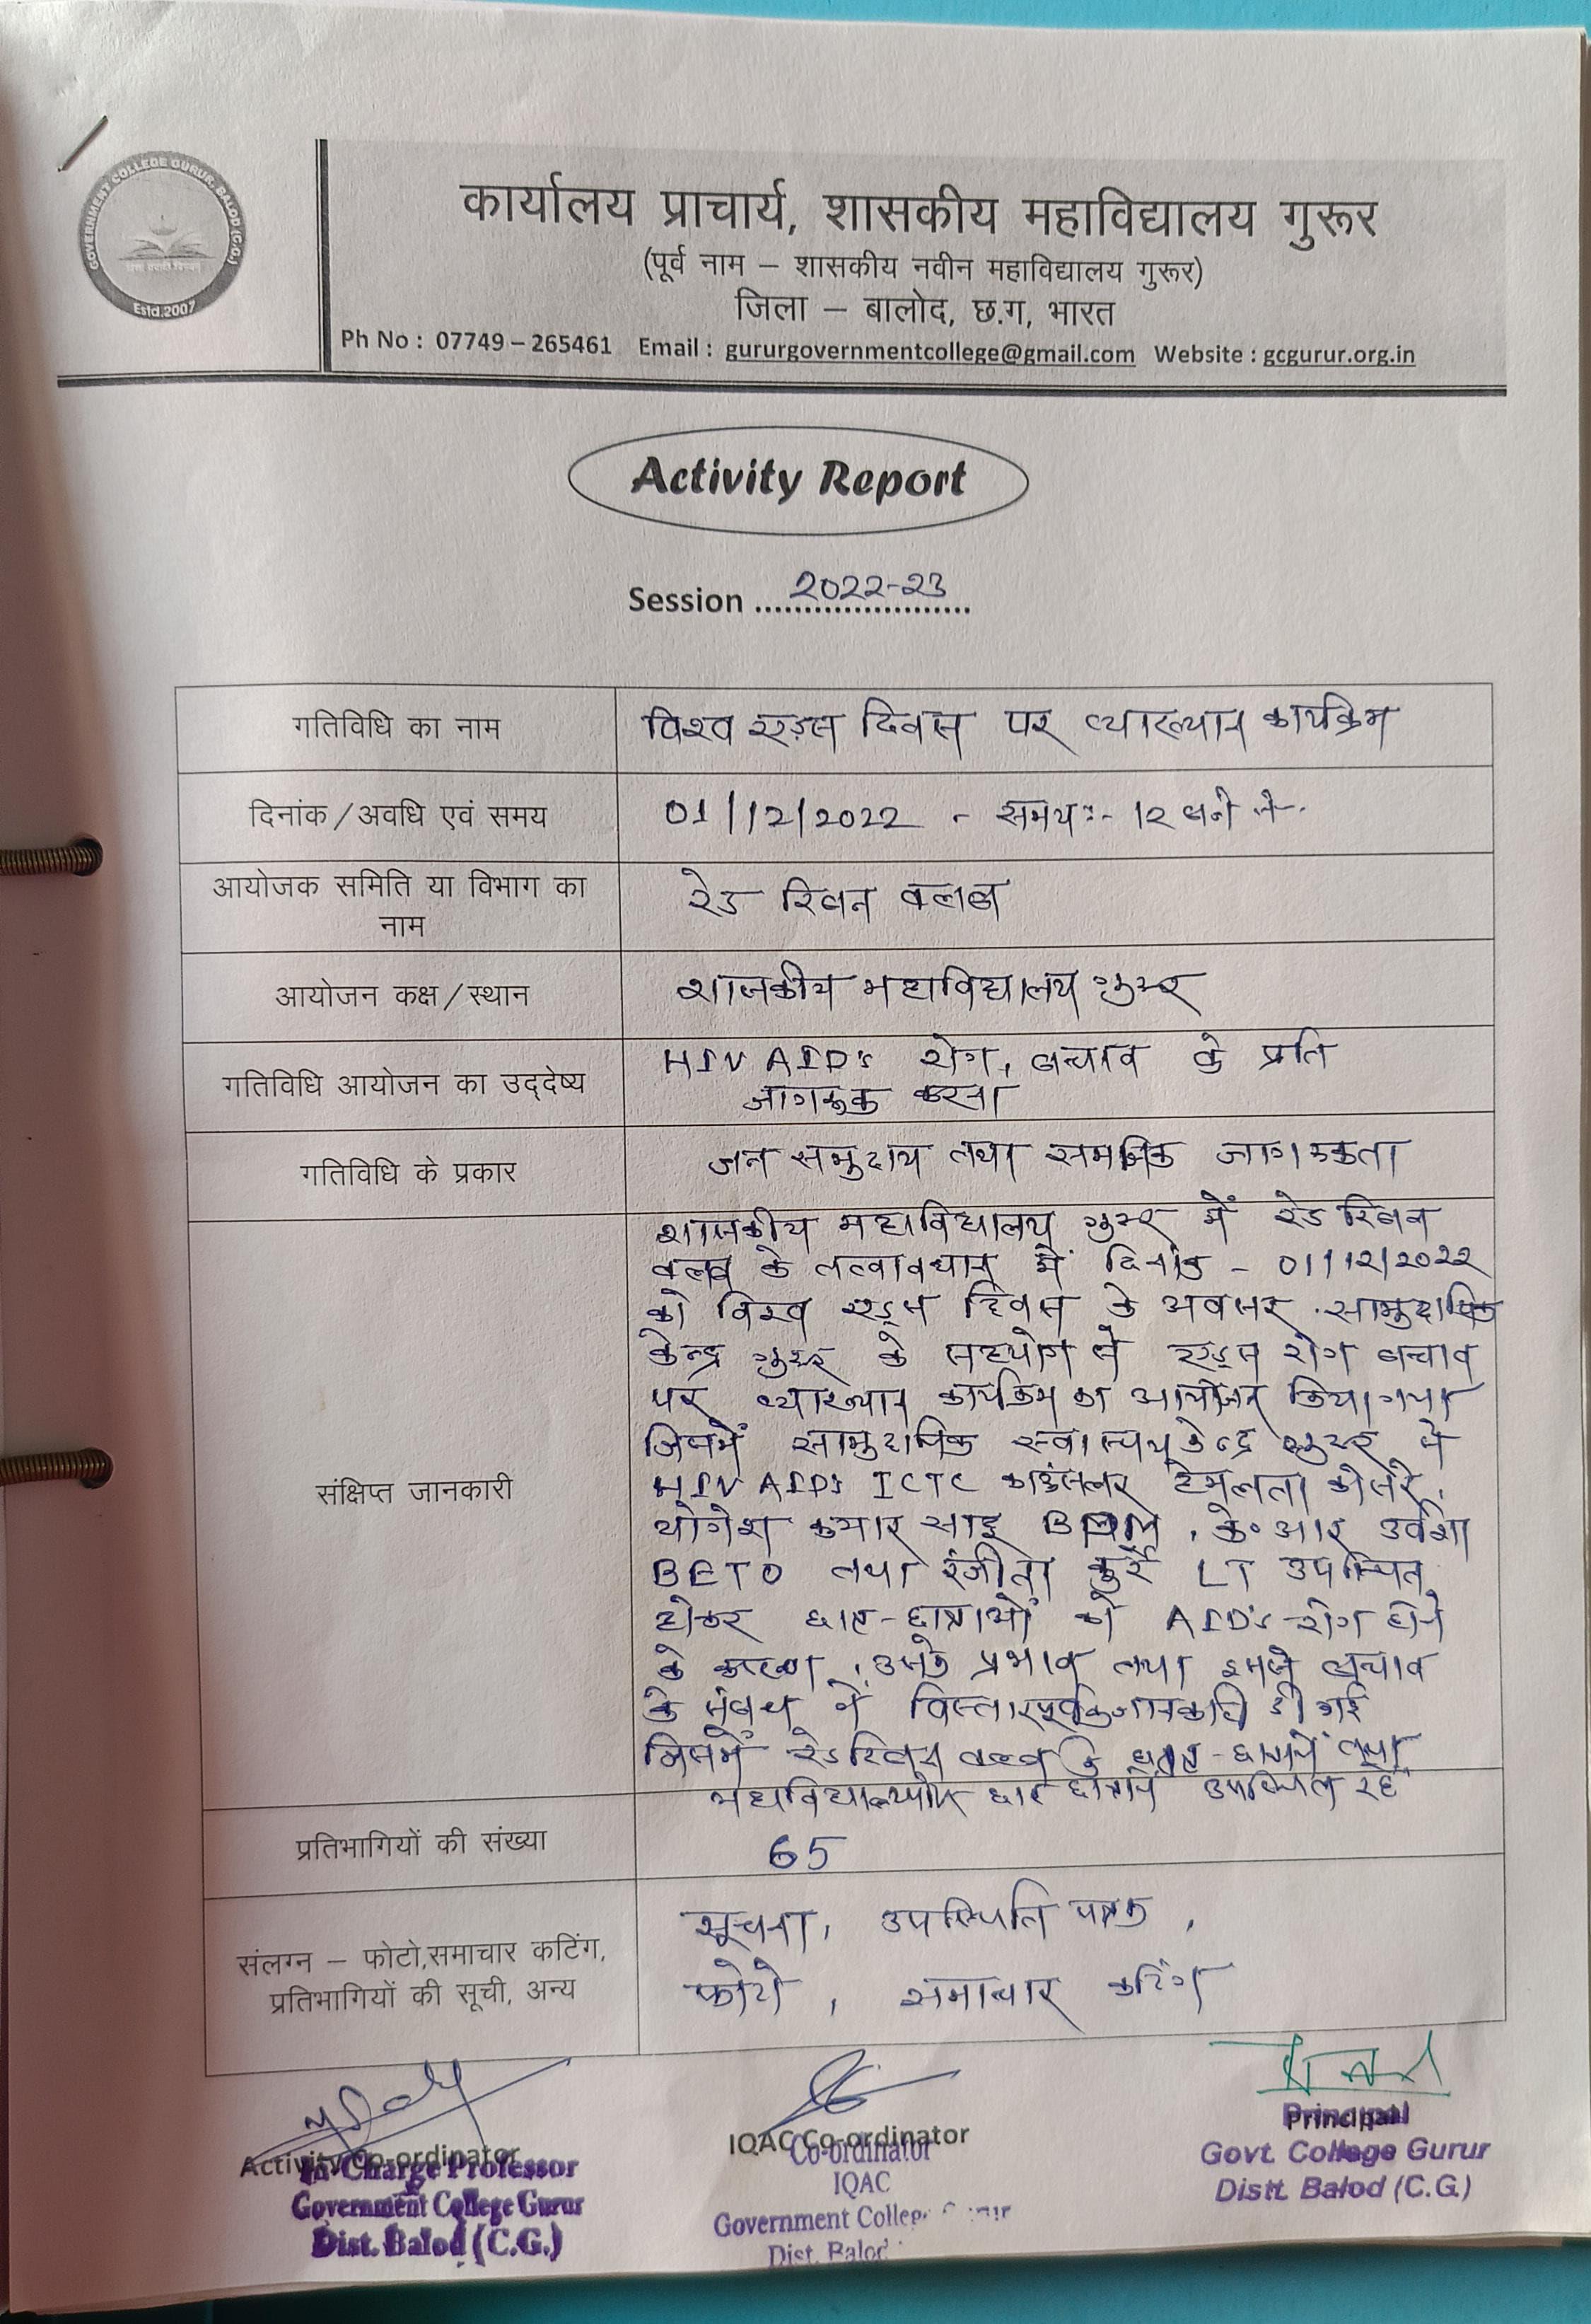 GOVERNMENT COLLEGE GURUR, BALOD (C.G.)
Estd.2007
कार्यालय प्राचार्य, शासकीय महाविद्यालय गुरूर
(पूर्व नाम – शासकीय नवीन महाविद्यालय गुरूर)
जिला – बालोद, छ.ग, भारत
Ph No : 07749 – 265461 Email : gururgovernmentcollege@gmail.com Website : gcgurur.org.in
Activity Report
Session ...................... 2022-23
गतिविधि का नाम
विश्व एड्स दिवस पर व्याख्यान कार्यक्रम
दिनांक/अवधि एवं समय
01/12/2022 - समय:- 12 बजे से
आयोजक समिति या विभाग का
नाम
रेड रिबन क्लब
आयोजन कक्ष/स्थान
शासकीय महाविद्यालय गुरूर
गतिविधि आयोजन का उद्देष्य
HIV AID's रोग, बचाव के प्रति
जागरूक करना
गतिविधि के प्रकार
जन समुदाय तथा समाजिक जागरूकता
संक्षिप्त जानकारी
शासकीय महाविद्यालय गुरूर में रेड रिबन
क्लब के तत्वावधान में दिनांक - 01/12/2022
को विश्व एड्स दिवस के अवसर सामुदायिक
केन्द्र गुरूर के सहयोग से एड्स रोग बचाव
पर व्याख्यान कार्यक्रम का आयोजन किया गया
जिसमें सामुदायिक स्वास्थ्य केन्द्र गुरूर से
HIV AID's ICTC काउंसलर हेमलता कोसरे,
योगेश कुमार साहू के. आर. उर्वशा
BETO तथा रंजीता कुर्रे LT उपस्थित
होकर छात्र-छात्राओं को AID's रोग होने
के कारण, उसके प्रभाव तथा इससे बचाव
के संबंध में विस्तारपूर्वक जानकारी दी गई
जिसमें रेड रिबन क्लब के छात्र-छात्रायें तथा
महाविद्यालयीन छात्र छात्रायें उपस्थित रहें
प्रतिभागियों की संख्या
65
संलग्न – फोटो,समाचार कटिंग,
प्रतिभागियों की सूची, अन्य
सूचना, उपस्थिति पत्रक,
फोटो, समाचार कटिंग
Activity Co-ordinator
In-Charge Professor
Government College Gurur
Dist. Balod (C.G.)
IQAC Co-ordinator
Co-ordinator
IQAC
Government College
Dist. Balod
Principal
Principal
Govt. College Gurur
Distt. Balod (C.G.)